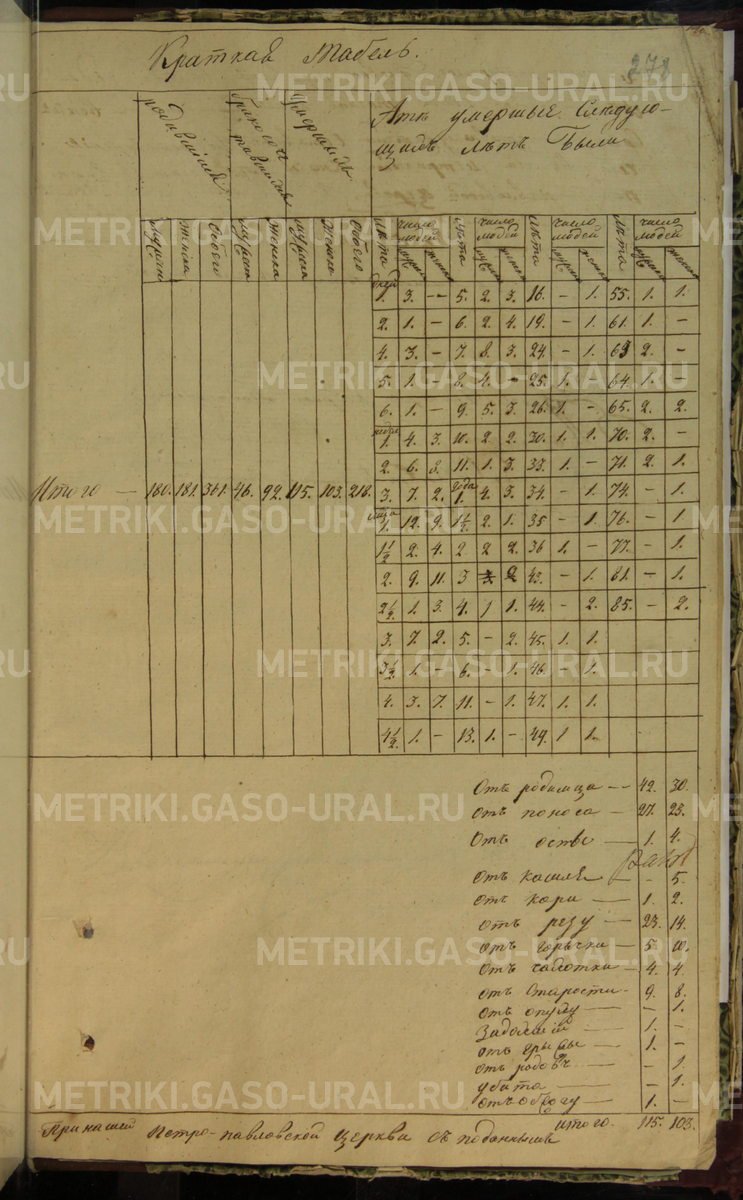 Краткая Табель.
278
родившихся
умершихъ
Лѣтъ умершие Следую-
щимъ лѣтъ были
мужска женска обоего мужска женска мужска женска обоего лѣта число людей лѣта число людей лѣта число людей лѣта число людей
дней
1. 3. — 5. 2. 3. 16. — 1. 55. 1. 1.
2. 1. — 6. 2. 4. 19. — 1. 61. 1. —
4. 3. — 7. 8. 3. 24. — 1. 63 2. —
5. 1. — 8. 4. — 25. 1. — 64. 1. —
6. 1. — 9. 5. 3. 26. 1. — 65. 2. 2.
недел
1. 4. 3. 10. 2 2. 30. 1. 1. 70. 2. —
2. 6. 8. 11. 1. 3. 33. 1. — 71. 2. 1.
Итого — 180. 181. 361. 46. 92. 115. 103. 218. 3. 7. 2. года 1. 4. 3. 34. — 1. 74. — 1.
мѣца 1. 12. 9. 1½ 2. 1. 35 — 1. 76. — 1
1½ 2. 4. 2 2 2. 36 1. — 77. — 1.
2. 9. 11. 3 2 43. — 1. 81. — 1.
2½ 1. 3. 4. 1 1. 44. — 2. 85. — 2.
3. 7. 2. 5. — 2. 45. 1. 1.
3½ 1. — 6. — 1. 46. — 1.
4. 3. 7. 11. — 1. 47. 1. 1.
4½ 1. — 13. 1. — 49. 1 1.
Отъ родимца — 42. 30.
отъ поноса — 27. 23.
Отъ оспы — 1. 4.
отъ кашля — - 5.
отъ кори — 1. 2.
отъ резу — 23. 14.
отъ горячки — 5. 10.
отъ чахотки — 4. 4
отъ Старости — 9. 8.
отъ опуху — — 1.
Задавшій — 1. —
отъ грыжы — 1. —
отъ родовъ — — 1
убита — — 1.
отъ — 1. —
итого. 115. 103.
При нашей Петро-павловской церкви съ поданными
METRIKI.GASO-URAL.RU